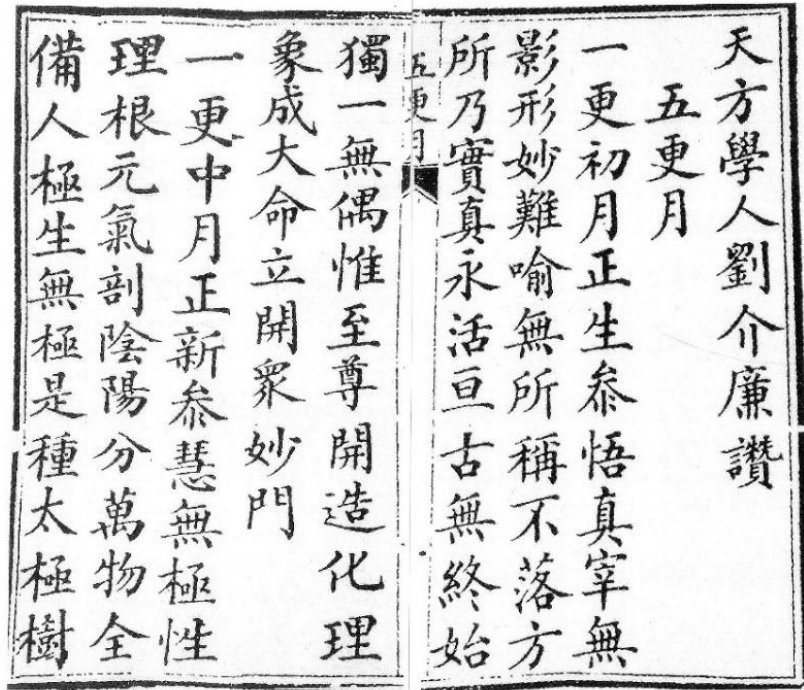 天方學人劉介廉讚
五更月
一更初月正生叅悟真宰無
影形妙難喻無所稱不落方
所乃實真永活亘古無終始
五更月
獨一無偶惟至尊開造化理
象成大命立開衆妙門
一更中月正新叅慧無極性
理根元氣剖陰陽分萬物全
備人極生無極是種太極樹